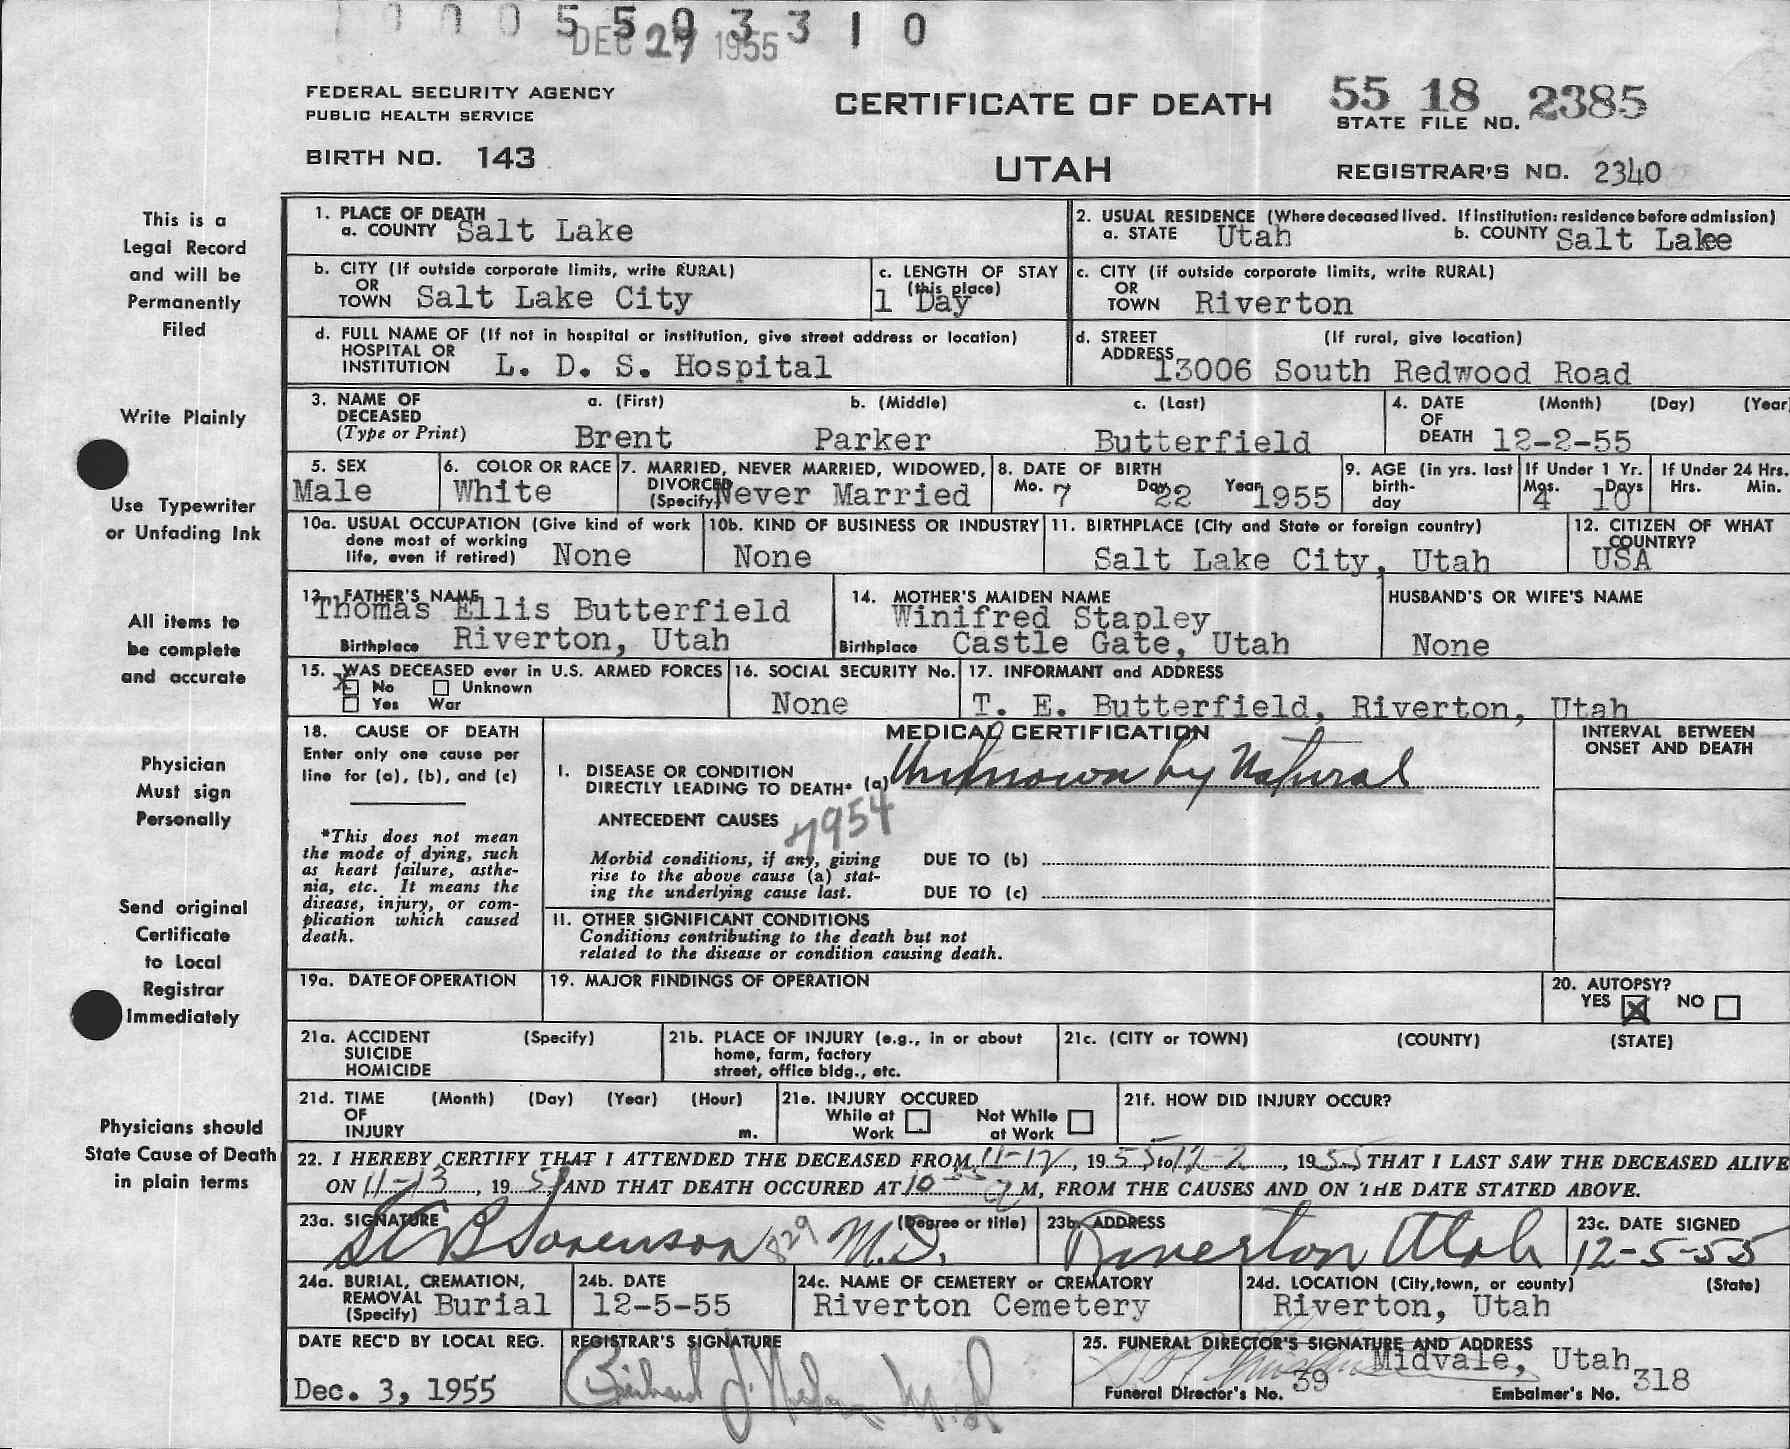 0 0 0 5 5 0 3 3 1 0
DEC 27 1955
FEDERAL SECURITY AGENCY
PUBLIC HEALTH SERVICE
BIRTH NO. 143
CERTIFICATE OF DEATH
UTAH
55 18 2385
STATE FILE NO.
REGISTRAR'S NO. 2340
This is a
Legal Record
and will be
Permanently
Filed
Write Plainly
Use Typewriter
or Unfading Ink
All items to
be complete
and accurate
Physician
Must sign
Personally
Send original
Certificate
to Local
Registrar
Immediately
Physicians should
State Cause of Death
in plain terms
1. PLACE OF DEATH
a. COUNTY Salt Lake
2. USUAL RESIDENCE (Where deceased lived. If institution: residence before admission)
a. STATE Utah b. COUNTY Salt Lake
b. CITY (If outside corporate limits, write RURAL)
OR
TOWN Salt Lake City
c. LENGTH OF STAY
(this place)
1 Day
c. CITY (if outside corporate limits, write RURAL)
OR
TOWN Riverton
d. FULL NAME OF (If not in hospital or institution, give street address or location)
HOSPITAL OR
INSTITUTION L. D. S. Hospital
d. STREET (If rural, give location)
ADDRESS 13006 South Redwood Road
3. NAME OF DECEASED (Type or Print)
a. (First) b. (Middle) c. (Last)
Brent Parker Butterfield
4. DATE (Month) (Day) (Year)
OF
DEATH 12-2-55
5. SEX
Male
6. COLOR OR RACE
White
7. MARRIED, NEVER MARRIED, WIDOWED,
DIVORCED
(Specify) Never Married
8. DATE OF BIRTH
Mo. 7 Day 22 Year 1955
9. AGE (in yrs. last
birth-
day
If Under 1 Yr.
Mos. Days
4 10
If Under 24 Hrs.
Hrs. Min.
10a. USUAL OCCUPATION (Give kind of work
done most of working
life, even if retired) None
10b. KIND OF BUSINESS OR INDUSTRY
None
11. BIRTHPLACE (City and State or foreign country)
Salt Lake City, Utah
12. CITIZEN OF WHAT
COUNTRY?
USA
13. FATHER'S NAME
Thomas Ellis Butterfield
Birthplace Riverton, Utah
14. MOTHER'S MAIDEN NAME
Winifred Stapley
Birthplace Castle Gate, Utah
HUSBAND'S OR WIFE'S NAME
None
15. WAS DECEASED ever in U.S. ARMED FORCES
X No Unknown
Yes War
16. SOCIAL SECURITY No.
None
17. INFORMANT and ADDRESS
T. E. Butterfield, Riverton, Utah
18. CAUSE OF DEATH
Enter only one cause per
line for (a), (b), and (c)
*This does not mean
the mode of dying, such
as heart failure, asthe-
nia, etc. It means the
disease, injury, or com-
plication which caused
death.
MEDICAL CERTIFICATION
I. DISEASE OR CONDITION
DIRECTLY LEADING TO DEATH* (a) Unknown by Natural
ANTECEDENT CAUSES
7954
Morbid conditions, if any, giving
rise to the above cause (a) stat-
ing the underlying cause last.
DUE TO (b)
DUE TO (c)
II. OTHER SIGNIFICANT CONDITIONS
Conditions contributing to the death but not
related to the disease or condition causing death.
INTERVAL BETWEEN
ONSET AND DEATH
19a. DATE OF OPERATION
19. MAJOR FINDINGS OF OPERATION
20. AUTOPSY?
YES X NO
21a. ACCIDENT (Specify)
SUICIDE
HOMICIDE
21b. PLACE OF INJURY (e.g., in or about
home, farm, factory
street, office bldg., etc.
21c. (CITY or TOWN) (COUNTY) (STATE)
21d. TIME (Month) (Day) (Year) (Hour)
OF
INJURY m.
21e. INJURY OCCURED
While at Work Not While at Work
21f. HOW DID INJURY OCCUR?
22. I HEREBY CERTIFY THAT I ATTENDED THE DECEASED FROM 11-12, 1955 to 12-2, 1955 THAT I LAST SAW THE DECEASED ALIVE
ON 11-13, 195 AND THAT DEATH OCCURED AT 10 M, FROM THE CAUSES AND ON THE DATE STATED ABOVE.
23a. SIGNATURE (Degree or title)
Sorenson 829 M.D.
23b. ADDRESS
Riverton Utah
23c. DATE SIGNED
12-5-55
24a. BURIAL, CREMATION,
REMOVAL
(Specify) Burial
24b. DATE
12-5-55
24c. NAME OF CEMETERY or CREMATORY
Riverton Cemetery
24d. LOCATION (City, town, or county) (State)
Riverton, Utah
DATE REC'D BY LOCAL REG.
Dec. 3, 1955
REGISTRAR'S SIGNATURE
25. FUNERAL DIRECTOR'S SIGNATURE AND ADDRESS
Midvale, Utah
Funeral Director's No. 39 Embalmer's No. 318